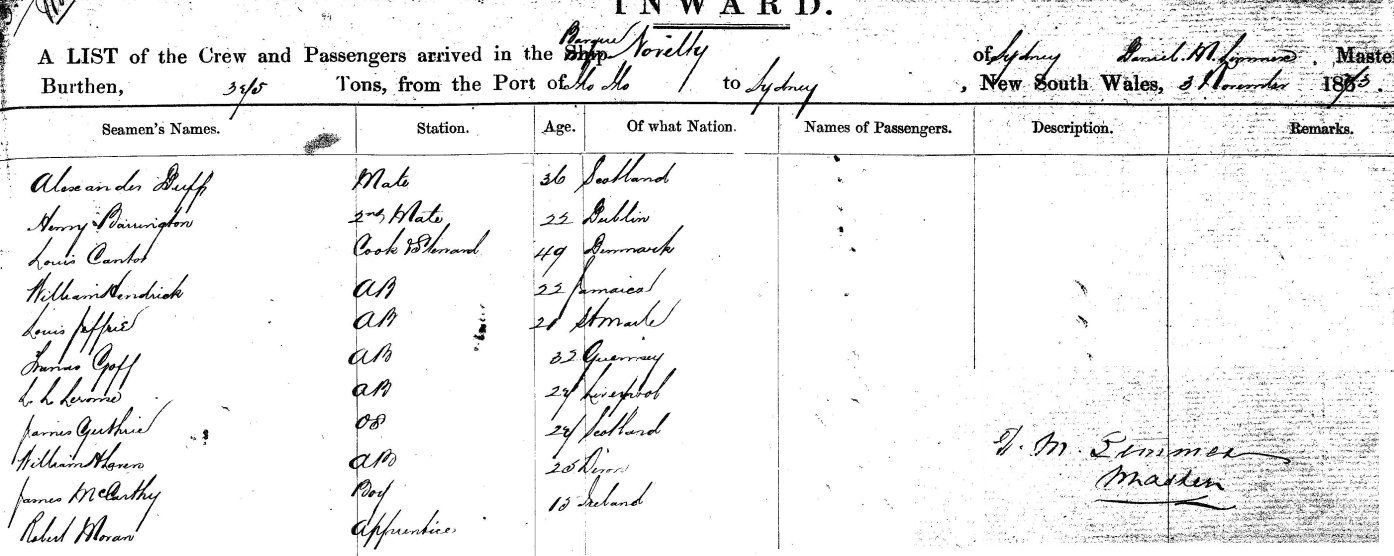 INWARD.
A LIST of the Crew and Passengers arrived in the Ship Barque Novelty of Sydney Daniel M. Master
Burthen, 345 Tons, from the Port of Ilo Ilo to Sydney, New South Wales, 3 November 1873.
Seamen's Names. Station. Age. Of what Nation. Names of Passengers. Description. Remarks.
Alexander Duff Mate 36 Scotland
Henry Barrington 2nd Mate 22 Dublin
Louis Cantor Cook & Steward 49 Denmark
William Hendrick AB 22 Jamaica
Louis Jeffrie AB St
Francis Goff AB 32 Guernsey
L. L. Lerome AB 24 Liverpool
James Guthrie OS 24 Scotland
William AB Devon
James McCarthy Boy Ireland
Robert Moran Apprentice
D. M.
Master